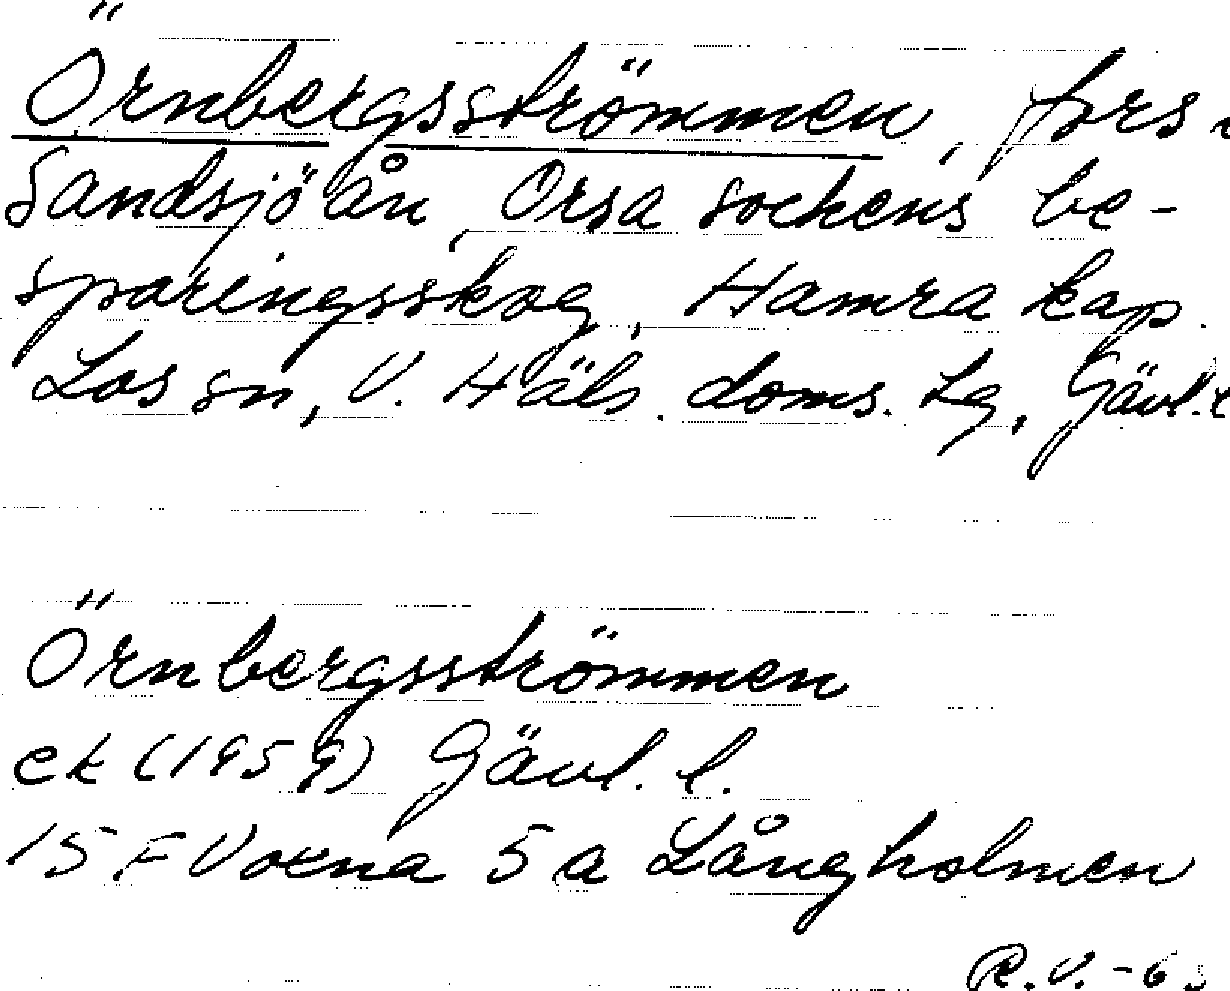 Örnbergsströmmen, fors
Sandsjöån, Orsa sockens be-
sparingsskog, Hamra kap.
Los sn, V. Häls. doms. tg, Gävl.
Örnbergsströmmen
ek (1959) Gävl. l.
15 F Voxna 5 a Långholmen
R.V.-6